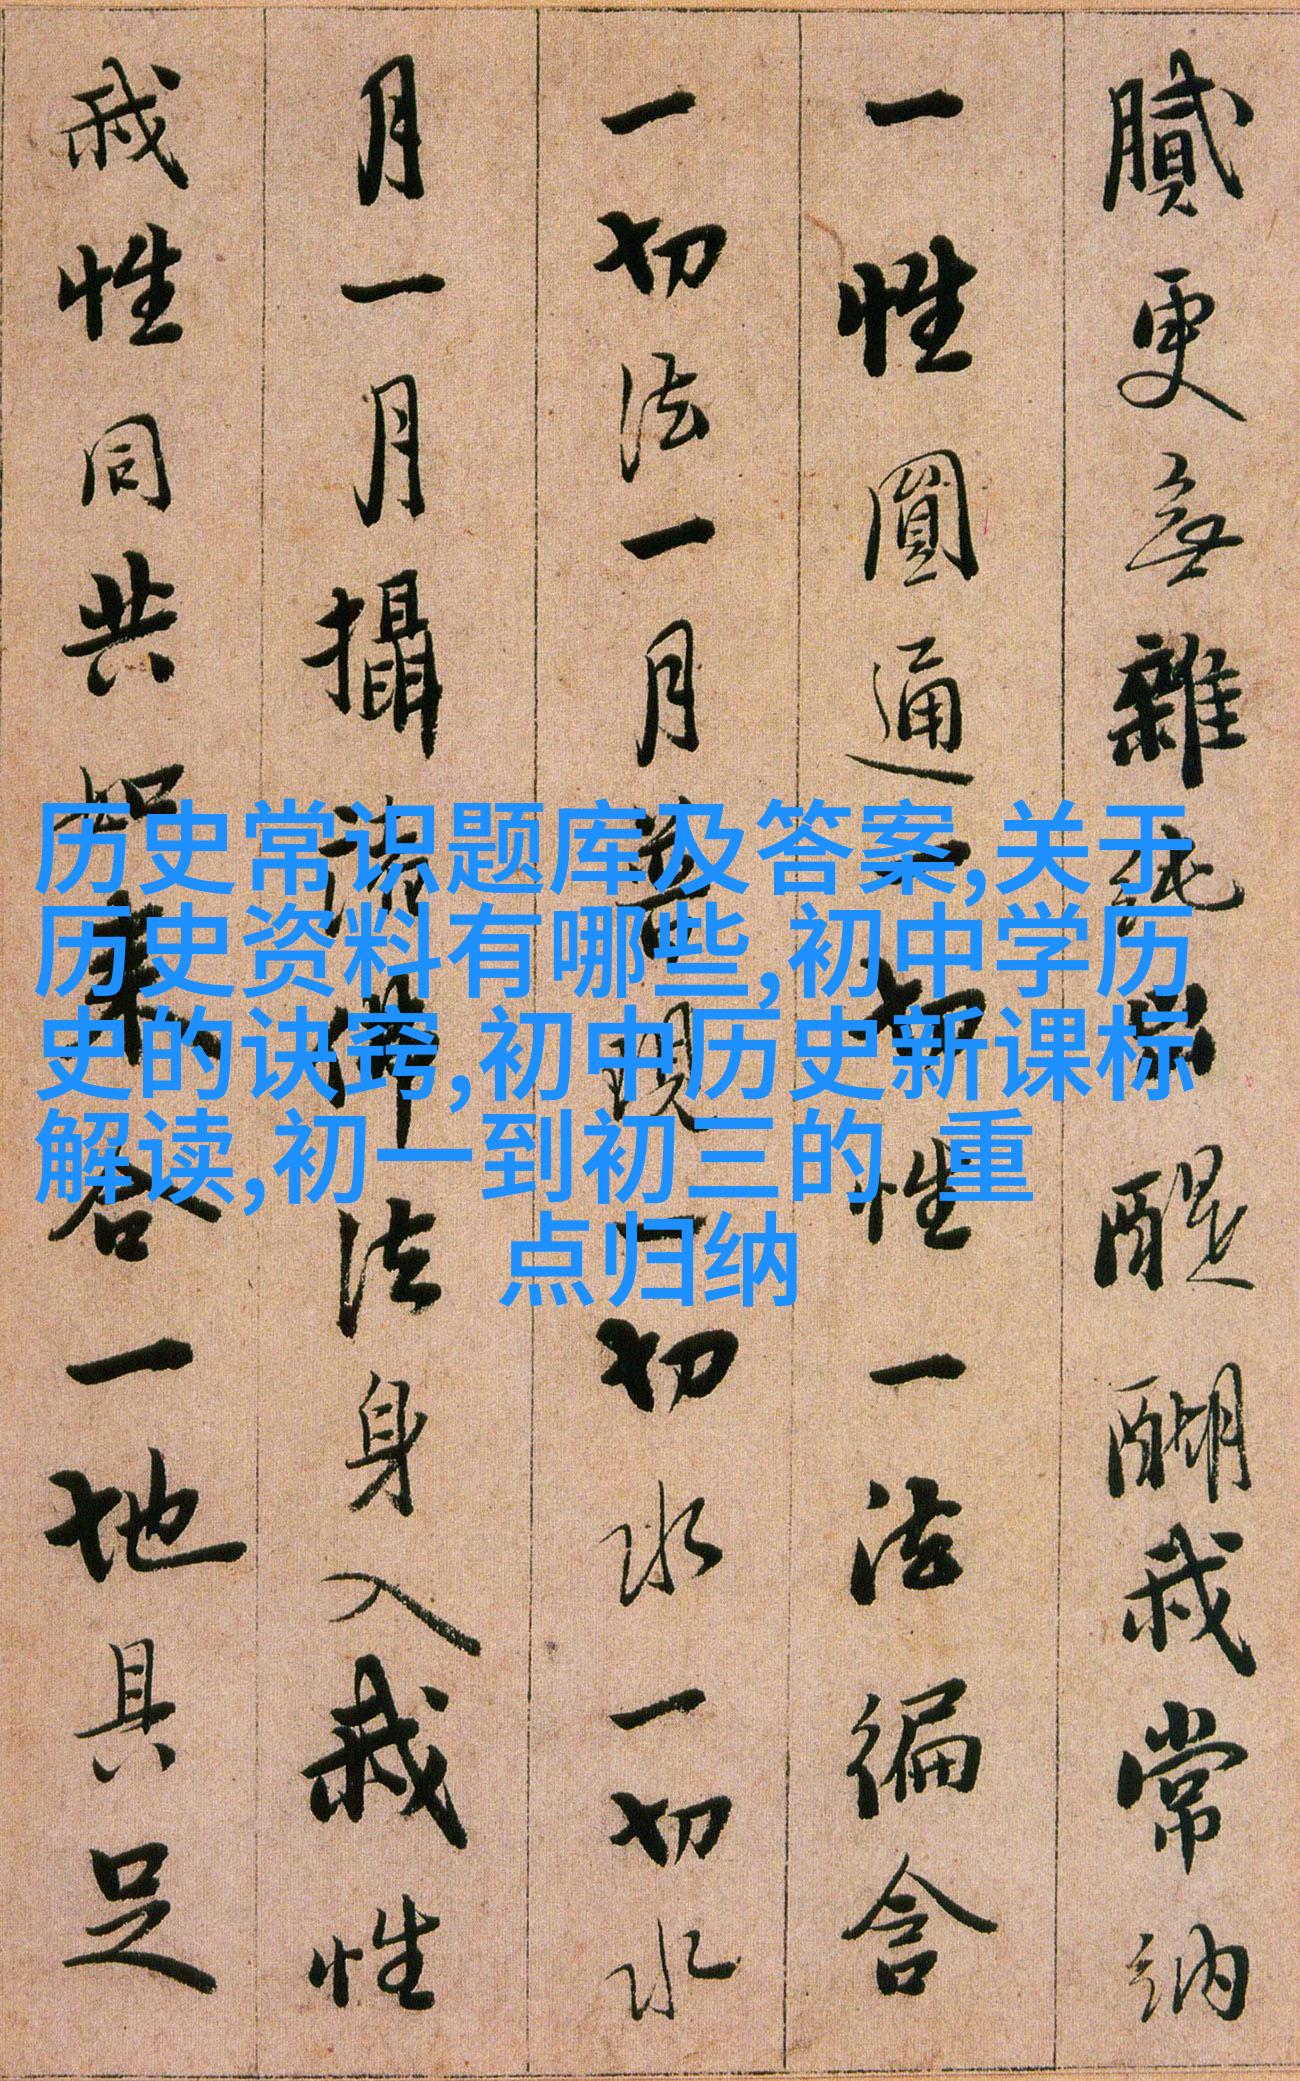 膩更無雜純出醍醐我常納
一性圓通一切性一法徧含
一切法一月普現一切水一切水
月一月攝諸佛法身入我性
我性同共如來合一地具足
历史常识题库及答案,关于
历史资料有哪些,初中学历
史的诀窍,初中历史新课标
解读,初一到初三的 重
点归纳